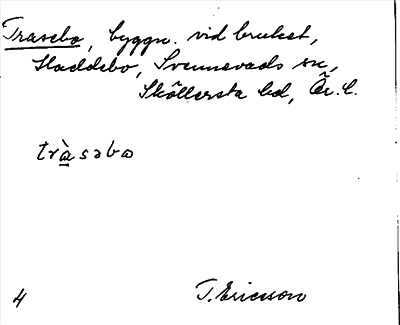 Trasebo, byggn. vid bruket,
Haddebo, Svennevads sn,
Sköllersta hd, Ör. l.
tràsəbo
4 T. Ericsson